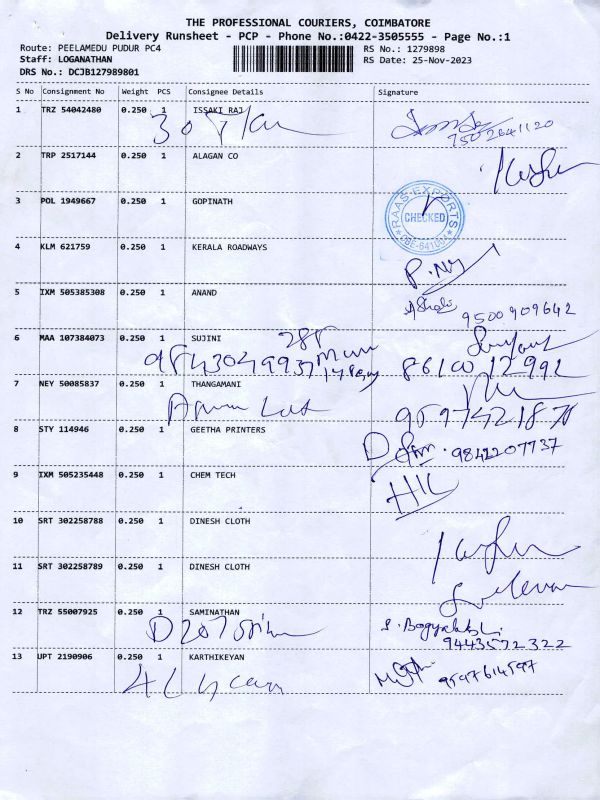 THE PROFESSIONAL COURIERS, COIMBATORE
Delivery Runsheet - PCP - Phone No.:0422-3505555 - Page No.:1
Route: PEELAMEDU PUDUR PC4 RS No.: 1279898
Staff: LOGANATHAN RS Date: 25-Nov-2023
DRS No.: DCJB127989801
S No Consignment No Weight PCS Consignee Details Signature
1 TRZ 54042480 0.250 1 ISSAKI RAJ
7502641120
2 TRP 2517144 0.250 1 ALAGAN CO
3 POL 1949667 0.250 1 GOPINATH
RAAS EXPORTS
CHECKED
4 KLM 621759 0.250 1 KERALA ROADWAYS
5 IXM 505385308 0.250 1 ANAND
9500909642
6 MAA 107384073 0.250 1 SUJINI
8610012992
7 NEY 50085837 0.250 1 THANGAMANI
8 STY 114946 0.250 1 GEETHA PRINTERS
9842207737
9 IXM 505235448 0.250 1 CHEM TECH
10 SRT 302258788 0.250 1 DINESH CLOTH
11 SRT 302258789 0.250 1 DINESH CLOTH
12 TRZ 55007925 0.250 1 SAMINATHAN
9443572322
13 UPT 2190906 0.250 1 KARTHIKEYAN
9597614597